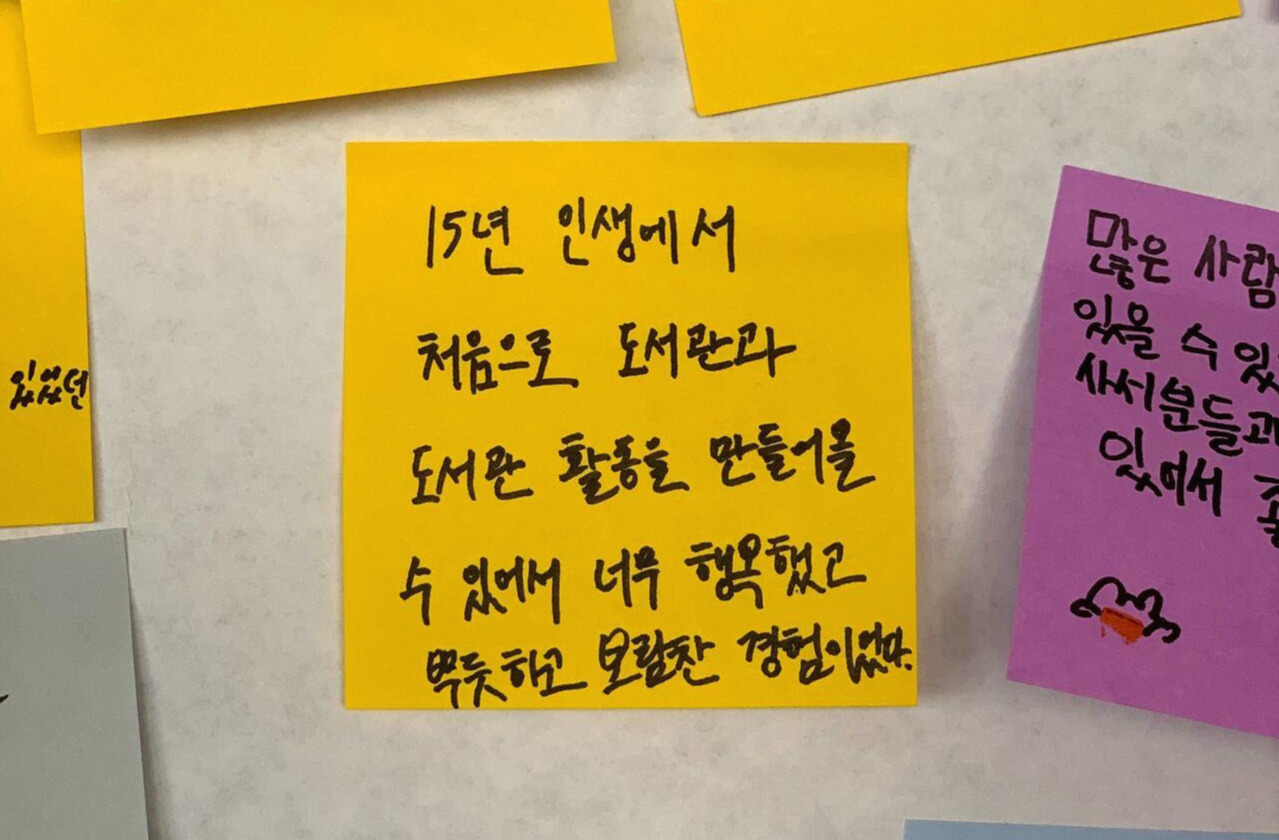 15년 인생에서
처음으로 도서관과
도서관 활동을 만들어올
수 있어서 너무 행복했고
뿌듯하고 보람찬 경험이었다.
있었던
많은 사람
있을 수 있
사서분들과
있어서